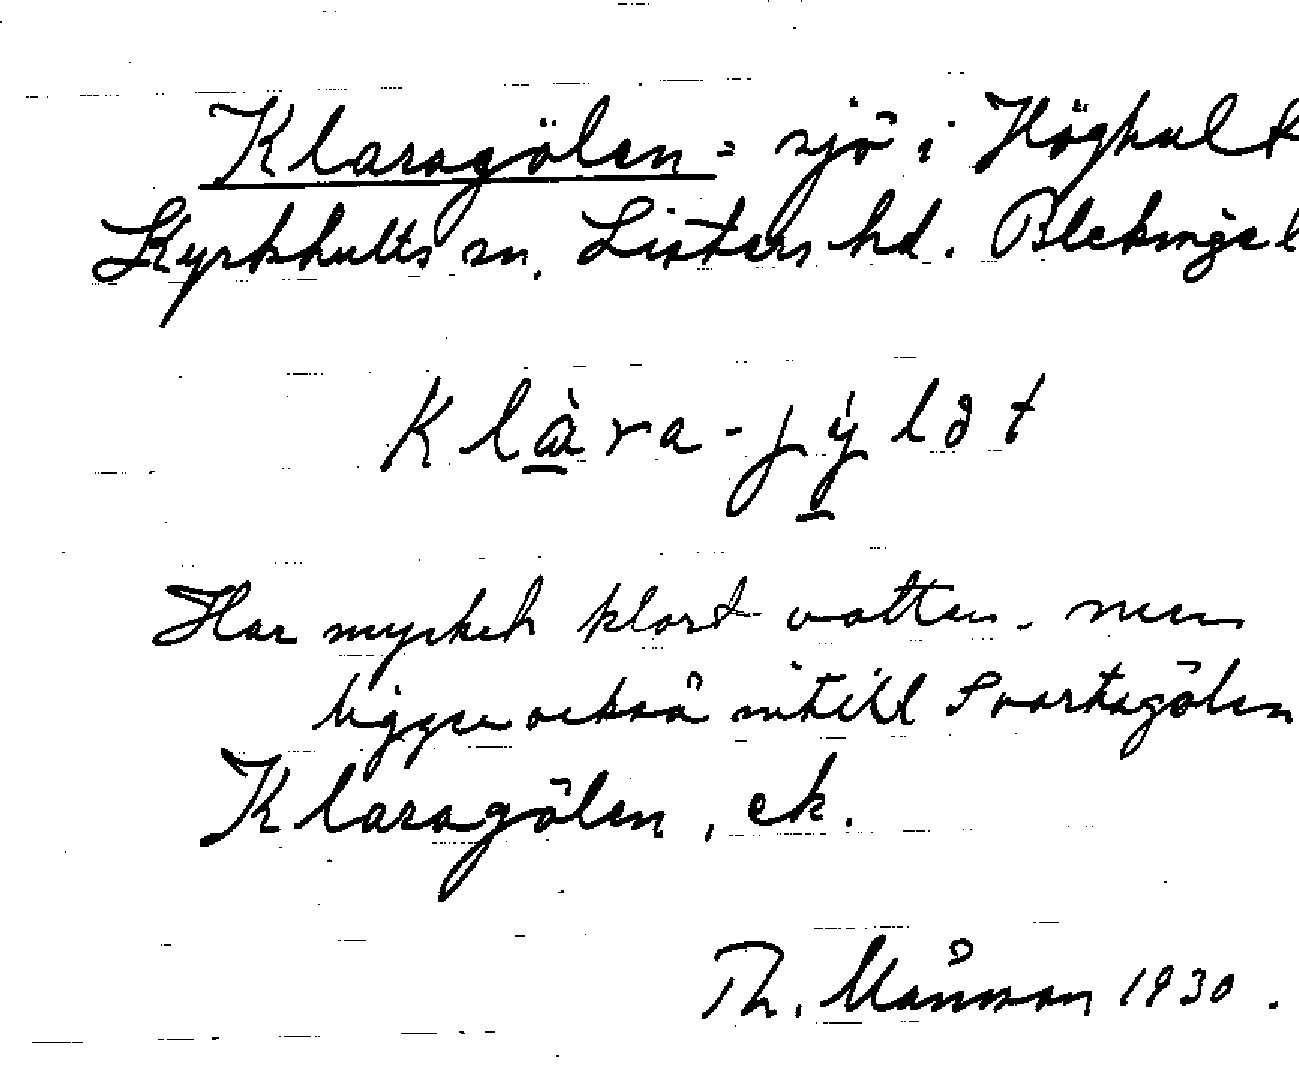 Klaragölen = sjö i Höghult
Kyrkhults sn. Listers hd. Blekinge l
Klàra-jýlǝt
Har mycket klart vatten. men
ligger också intill Svartagölen
Klaragölen, ek.
Th. Månsson 1930.